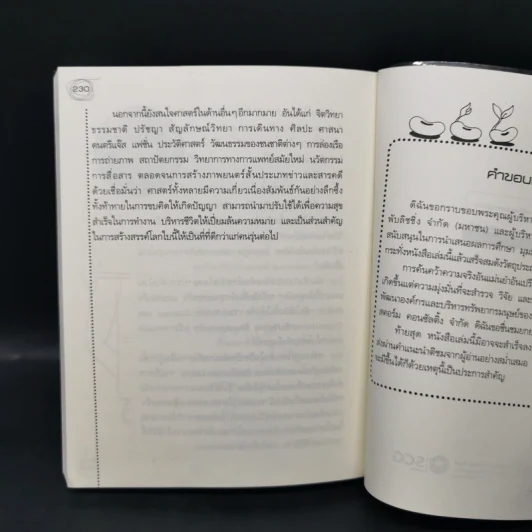 230
นอกจากนี้ยังสนใจศาสตร์ในด้านอื่นๆ อีกมากมาย อันได้แก่ จิตวิทยา
ธรรมชาติ ปรัชญา สัญลักษณ์วิทยา การเดินทาง ศิลปะ ศาสนา
ดนตรีแจ๊ส แฟชั่น ประวัติศาสตร์ วัฒนธรรมของชนชาติต่างๆ การล่องเรือ
การถ่ายภาพ สถาปัตยกรรม วิทยาการทางการแพทย์สมัยใหม่ นวัตกรรม
การสื่อสาร ตลอดจนการสร้างภาพยนตร์สั้นประเภทข่าวและสารคดี
ด้วยเชื่อมั่นว่า ศาสตร์ทั้งหลายมีความเกี่ยวเนื่องสัมพันธ์กันอย่างลึกซึ้ง
ทั้งท้าทายในการขบคิดให้เกิดปัญญา สามารถนำมาปรับใช้ได้เพื่อความสุข
สำเร็จในการทำงาน บริหารชีวิตให้เปี่ยมล้นความหมาย และเป็นส่วนสำคัญ
ในการสร้างสรรค์โลกใบนี้ให้เป็นที่ที่ดีกว่าแก่คนรุ่นต่อไป
คำขอบ
ดิฉันขอกราบขอบพระคุณผู้บริห
พับลิชชิ่ง จำกัด (มหาชน) และผู้บริห
สนับสนุนในการนำเสนอผลการศึกษา มุม
กระทั่งหนังสือเล่มนี้แล้วเสร็จสมดังวัตถุประ
การค้นคว้าความจริงอันแม่นยำอันเป็
เกิดขึ้นแต่ความมุ่งมั่นที่จะสำรวจ วิจัย และ
พัฒนาองค์กรและบริหารทรัพยากรมนุษย์ของ
สตอร์ม คอนซัลติ้ง จำกัด ดิฉันขอชื่นชมยก
ท้ายสุด หนังสือเล่มนี้มิอาจจะสำเร็จลง
ส่งผ่านคำแนะนำติชมจากผู้อ่านอย่างสม่ำเสมอ
จะมีขึ้นได้ก็ด้วยเหตุนี้เป็นประการสำคัญ